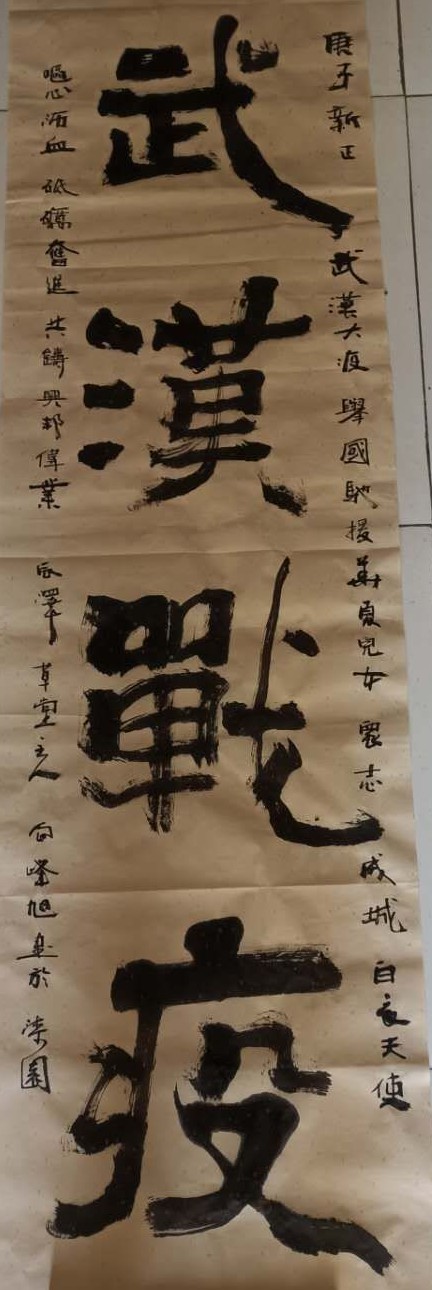 庚子新正武漢大疫舉國馳援華夏兒女眾志成城白衣天使
武漢戰疫
嘔心瀝血砥礪奮進共鑄興邦偉業辰澤草堂主人向峰旭書於漆園